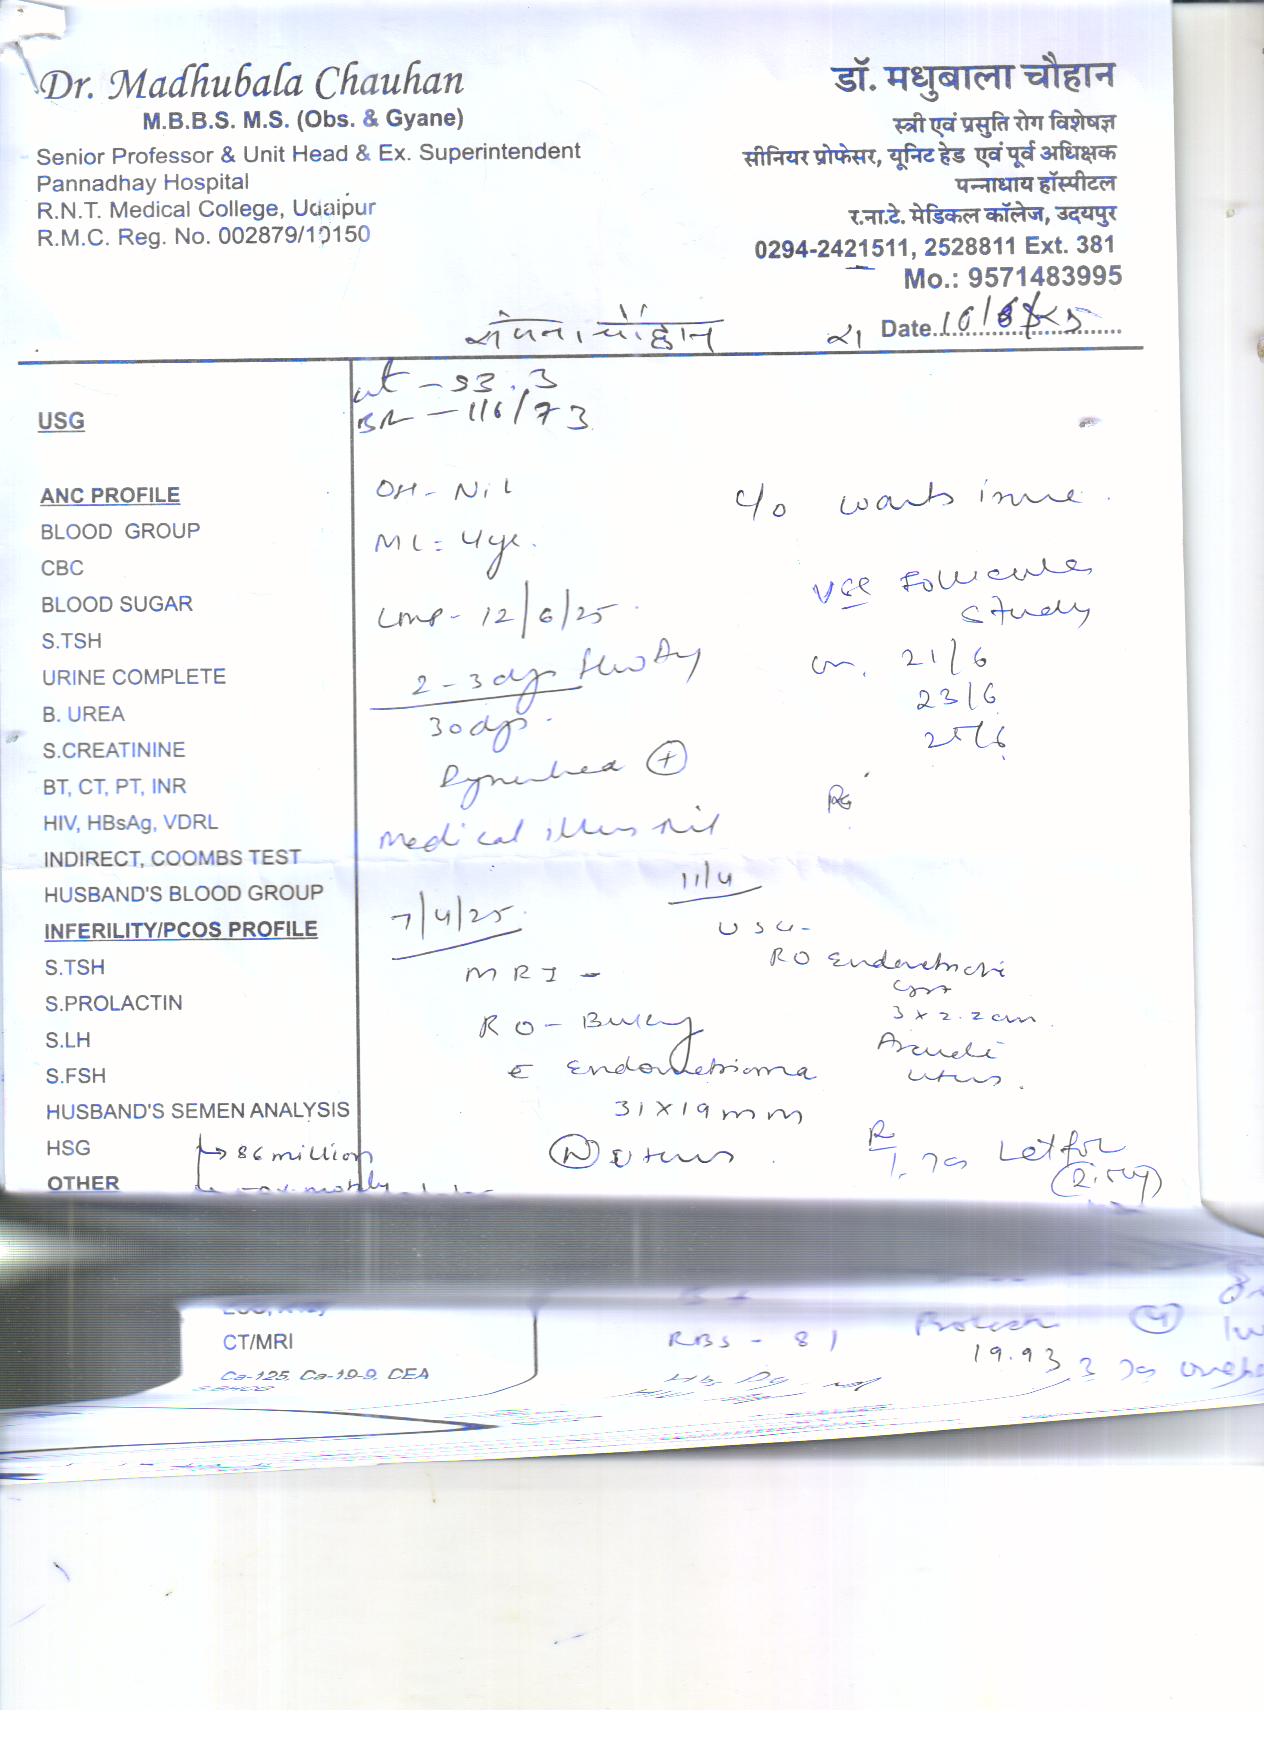 Dr. Madhubala Chauhan
M.B.B.S. M.S. (Obs. & Gyane)
Senior Professor & Unit Head & Ex. Superintendent
Pannadhay Hospital
R.N.T. Medical College, Udaipur
R.M.C. Reg. No. 002879/10150
डॉ. मधुबाला चौहान
स्त्री एवं प्रसुति रोग विशेषज्ञ
सीनियर प्रोफेसर, यूनिट हेड एवं पूर्व अधिक्षक
पन्नाधाय हॉस्पीटल
र.ना.टे. मेडिकल कॉलेज, उदयपुर
0294-2421511, 2528811 Ext. 381
Mo.: 9571483995
चौहान
Date
USG
ANC PROFILE
BLOOD GROUP
CBC
BLOOD SUGAR
S.TSH
URINE COMPLETE
B. UREA
S.CREATININE
BT, CT, PT, INR
HIV, HBsAg, VDRL
INDIRECT, COOMBS TEST
HUSBAND'S BLOOD GROUP
INFERILITY/PCOS PROFILE
S.TSH
S.PROLACTIN
S.LH
S.FSH
HUSBAND'S SEMEN ANALYSIS
HSG
86 million
OTHER
wt - 93.3
116/73
OH - Nil
ML = 4yr.
LMP - 12/6/25
2-3 dys
30 dys.
+
Medical illness nil
7/4/25
MRI -
RO - Bulky
c Endometrioma
31x19mm
N uterus.
c/o wants issue.
Follicular
study
on. 21/6
23/6
25/6
11/4
USG -
RO Endometriotic
cyst
3 x 2.2 cm
uterus.
R
1. Tab Letroz
CT/MRI
Ca-125, Ca-19-9, CEA
RBS - 81
19.93